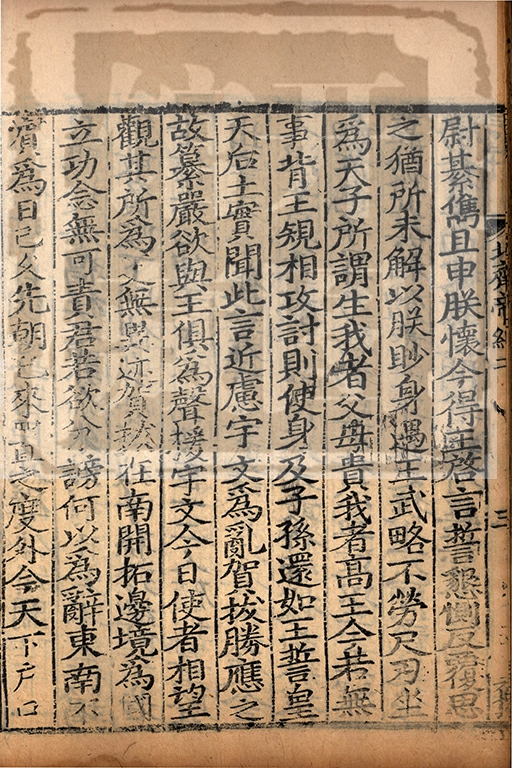 尉綦儁且申朕懷今得王啓言誓懇惻反覆思
之猶所未解以朕眇身遇王武略不勞尺刃坐
爲天子所謂生我者父母貴我者高王今若無
事背王規相攻討則使身及子孫還如王誓皇
天后土實聞此言近慮宇文爲亂賀拔勝應之
故纂嚴欲與王俱爲聲援宇文今日使者相望
觀其所爲更無異迹賀拔在南開拓邊境爲國
立功念無可責君若欲分謗何以爲辭東南不
賓爲日已久先朝已來置之度外今天下戶口